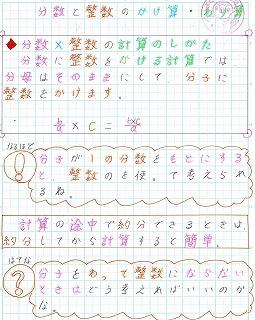 分数と整数のかけ算・わり算
◆分数×整数の計算のしかた
分数に整数をかける計算では、
分母はそのままにして、分子に
整数をかけます。
b/a × C = b×c/a
なるほど
! 分子が1の分数をもとにする
と、整数のを使って考えられ
るね。
計算の途中で約分できるときは、
約分してから計算すると簡単。
はてな
? 分子をわって整数にならない
ときはどう考えればいいのか
な。